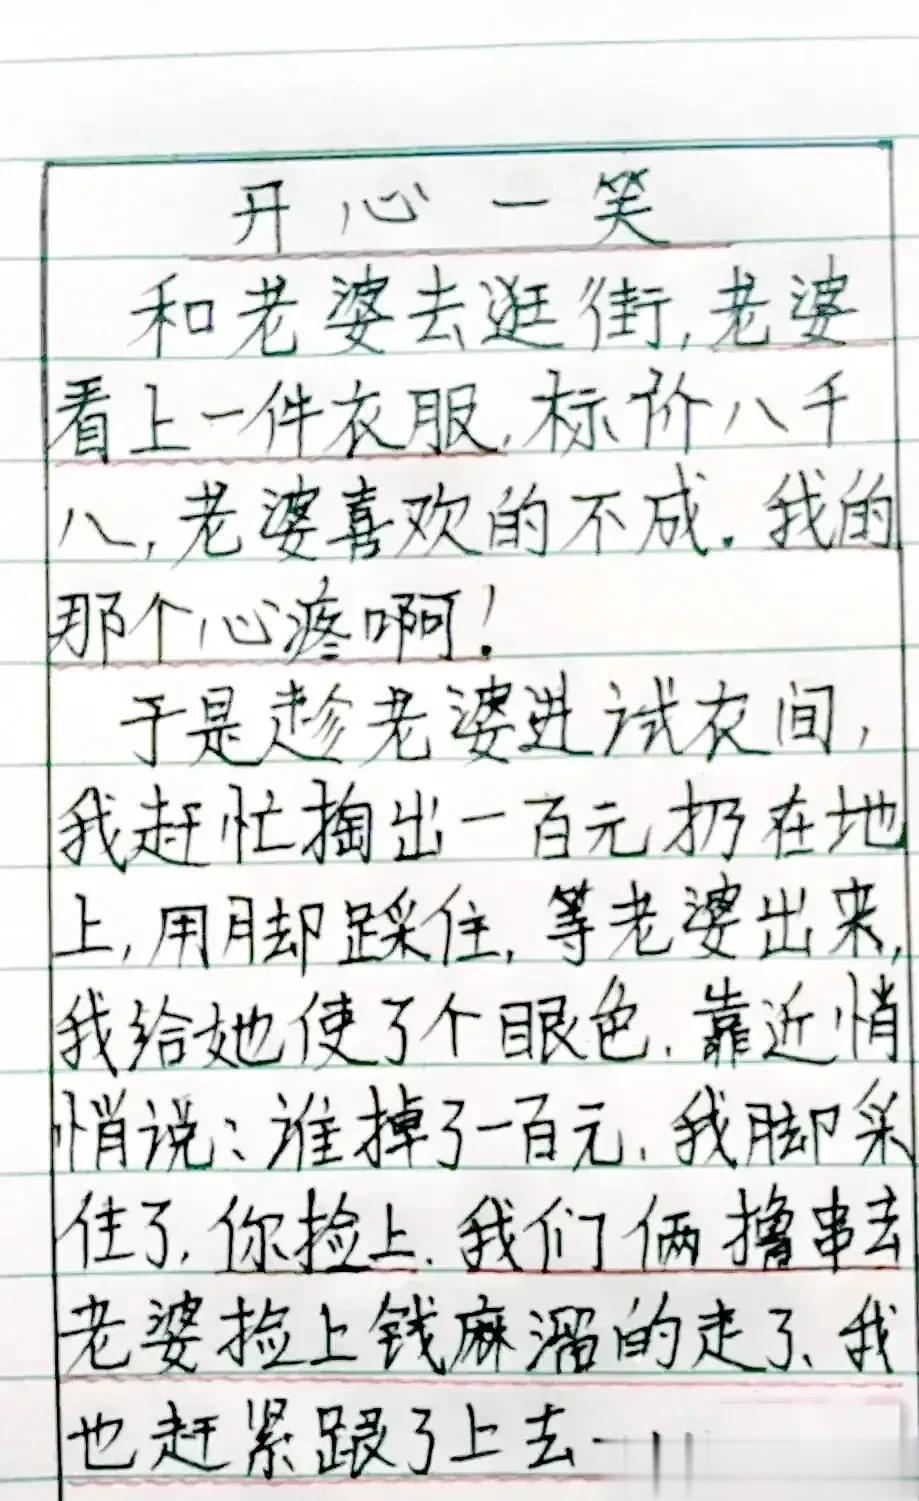 开心一笑
和老婆去逛街,老婆
看上一件衣服,标价八千
八,老婆喜欢的不成.我的
那个心疼啊!
于是趁老婆进试衣间,
我赶忙掏出一百元扔在地
上,用脚踩住,等老婆出来,
我给她使了个眼色.靠近悄
悄说:谁掉了一百元,我脚采
住了,你捡上.我们俩撸串去
老婆捡上钱麻溜的走了、我
也赶紧跟了上去一